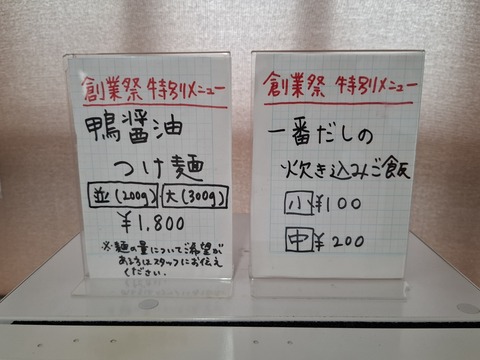 創業祭 特別メニュー
鴨醤油
つけ麺
並(200g) 大(300g)
¥1,800
※麺の量についてご希望が
あるようはスタッフにお伝え
ください。
創業祭 特別メニュー
一番だしの
炊き込みご飯
小 ¥100
中 ¥200